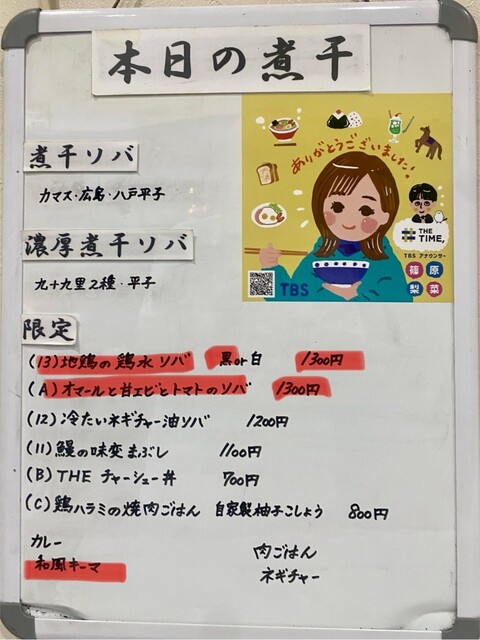 本日の煮干
煮干ソバ
カマス・広島・八戸平子
濃厚煮干ソバ
九十九里2種・平子
ありがとうございました!
THE TIME,
TBS アナウンサー
篠原
梨菜
TBS
限定
(13)地鶏の鶏水ソバ 黒or白 1300円
(A)オマールと甘エビとトマトのソバ 1300円
(12)冷たいネギチャー油ソバ 1200円
(11)鰻の味変まぶし 1100円
(B)THE チャーシュー丼 700円
(C)鶏ハラミの焼肉ごはん 自家製柚子こしょう 800円
カレー 肉ごはん
和風キーマ ネギチャー